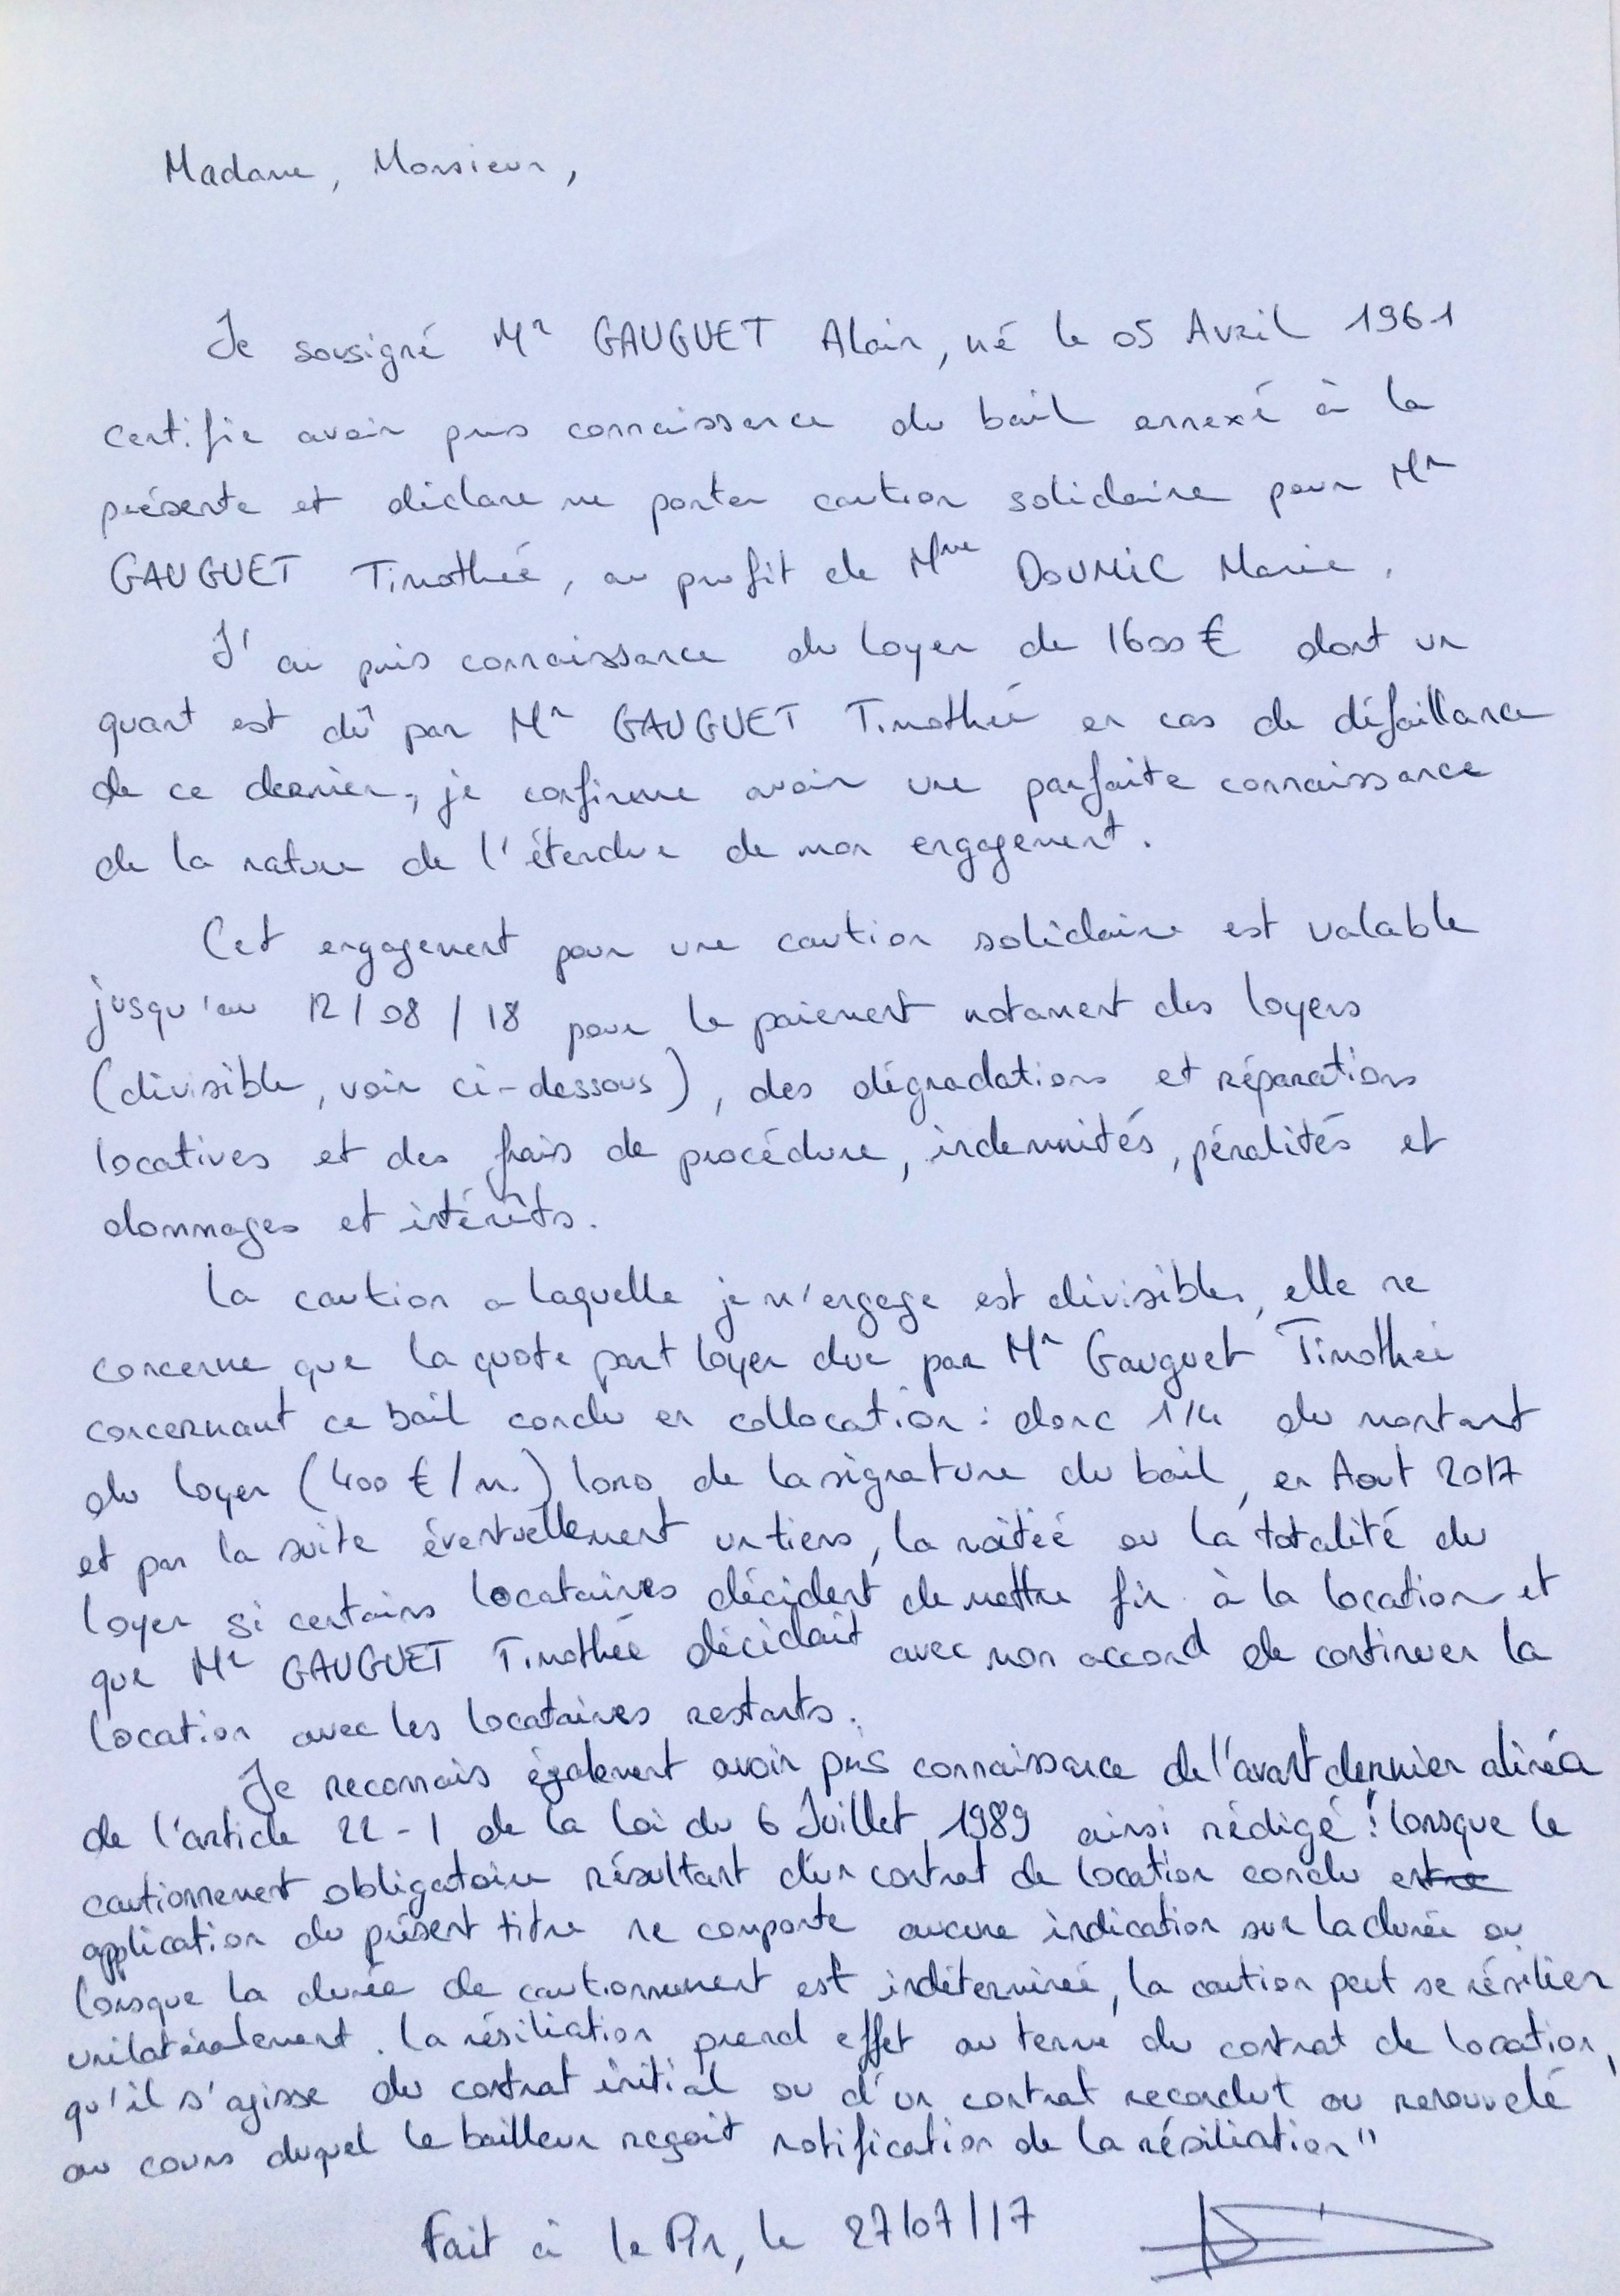 Madame, Monsieur,
Je sousigné Mr GAUGUET Alain, né le 05 Avril 1961
certifie avoir pris connaissance du bail annexé à la
présente et déclare me porter caution solidaire pour Mr
GAUGUET Timothée, au profit de Mme DOUMIC Marie.
J'ai pris connaissance du loyer de 1600 € dont un
quart est dû par Mr GAUGUET Timothée en cas de défaillance
de ce dernier, je confirme avoir une parfaite connaissance
de la nature de l'étendue de mon engagement.
Cet engagement pour une caution solidaire est valable
jusqu'au 12/08/18 pour le paiement notament des loyers
(divisible, voir ci-dessous), des dégradations et réparations
locatives et des frais de procédure, indemnités, pénalités et
dommages et intérêts.
La caution a laquelle je m'engage est divisible, elle ne
concerne que la quote part loyer due par Mr Gauguet Timothée
concernant ce bail conclu en collocation : donc 1/4 du montant
du loyer (400 €/m.) lors de la signature du bail, en Aout 2017
et par la suite éventuellement un tiers, la moitée ou la totalité du
loyer si certains locataires décident de mettre fin à la location et
que Mr GAUGUET Timothée décidait avec mon accord de continuer la
location avec les locataires restants.
Je reconnais également avoir pris connaissance de l'avant dernier alinéa
de l'article 22-1 de la loi du 6 Juillet 1989 ainsi rédigé : lorsque le
cautionnement obligatoire résultant d'un contrat de location conclu en
application du présent titre ne comporte aucune indication sur la durée ou
lorsque la durée de cautionnement est indéterminée, la caution peut se résilier
unilatéralement. La résiliation prend effet au terme du contrat de location,
qu'il s'agisse du contrat initial ou d'un contrat recondut ou renouvelé
au cours duquel le bailleur reçoit notification de la résiliation"
Fait à le Pin, le 27/07/17